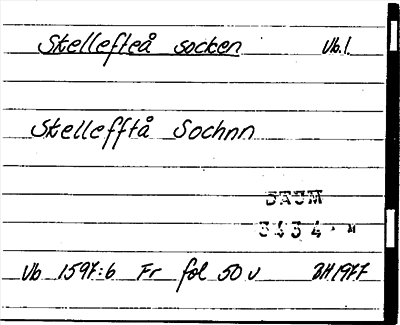 Skellefteå socken Vb.l.
Skellefftå Sochnn
DAUM
3434
Vb 1597:6 Fr fol 50 v 1977